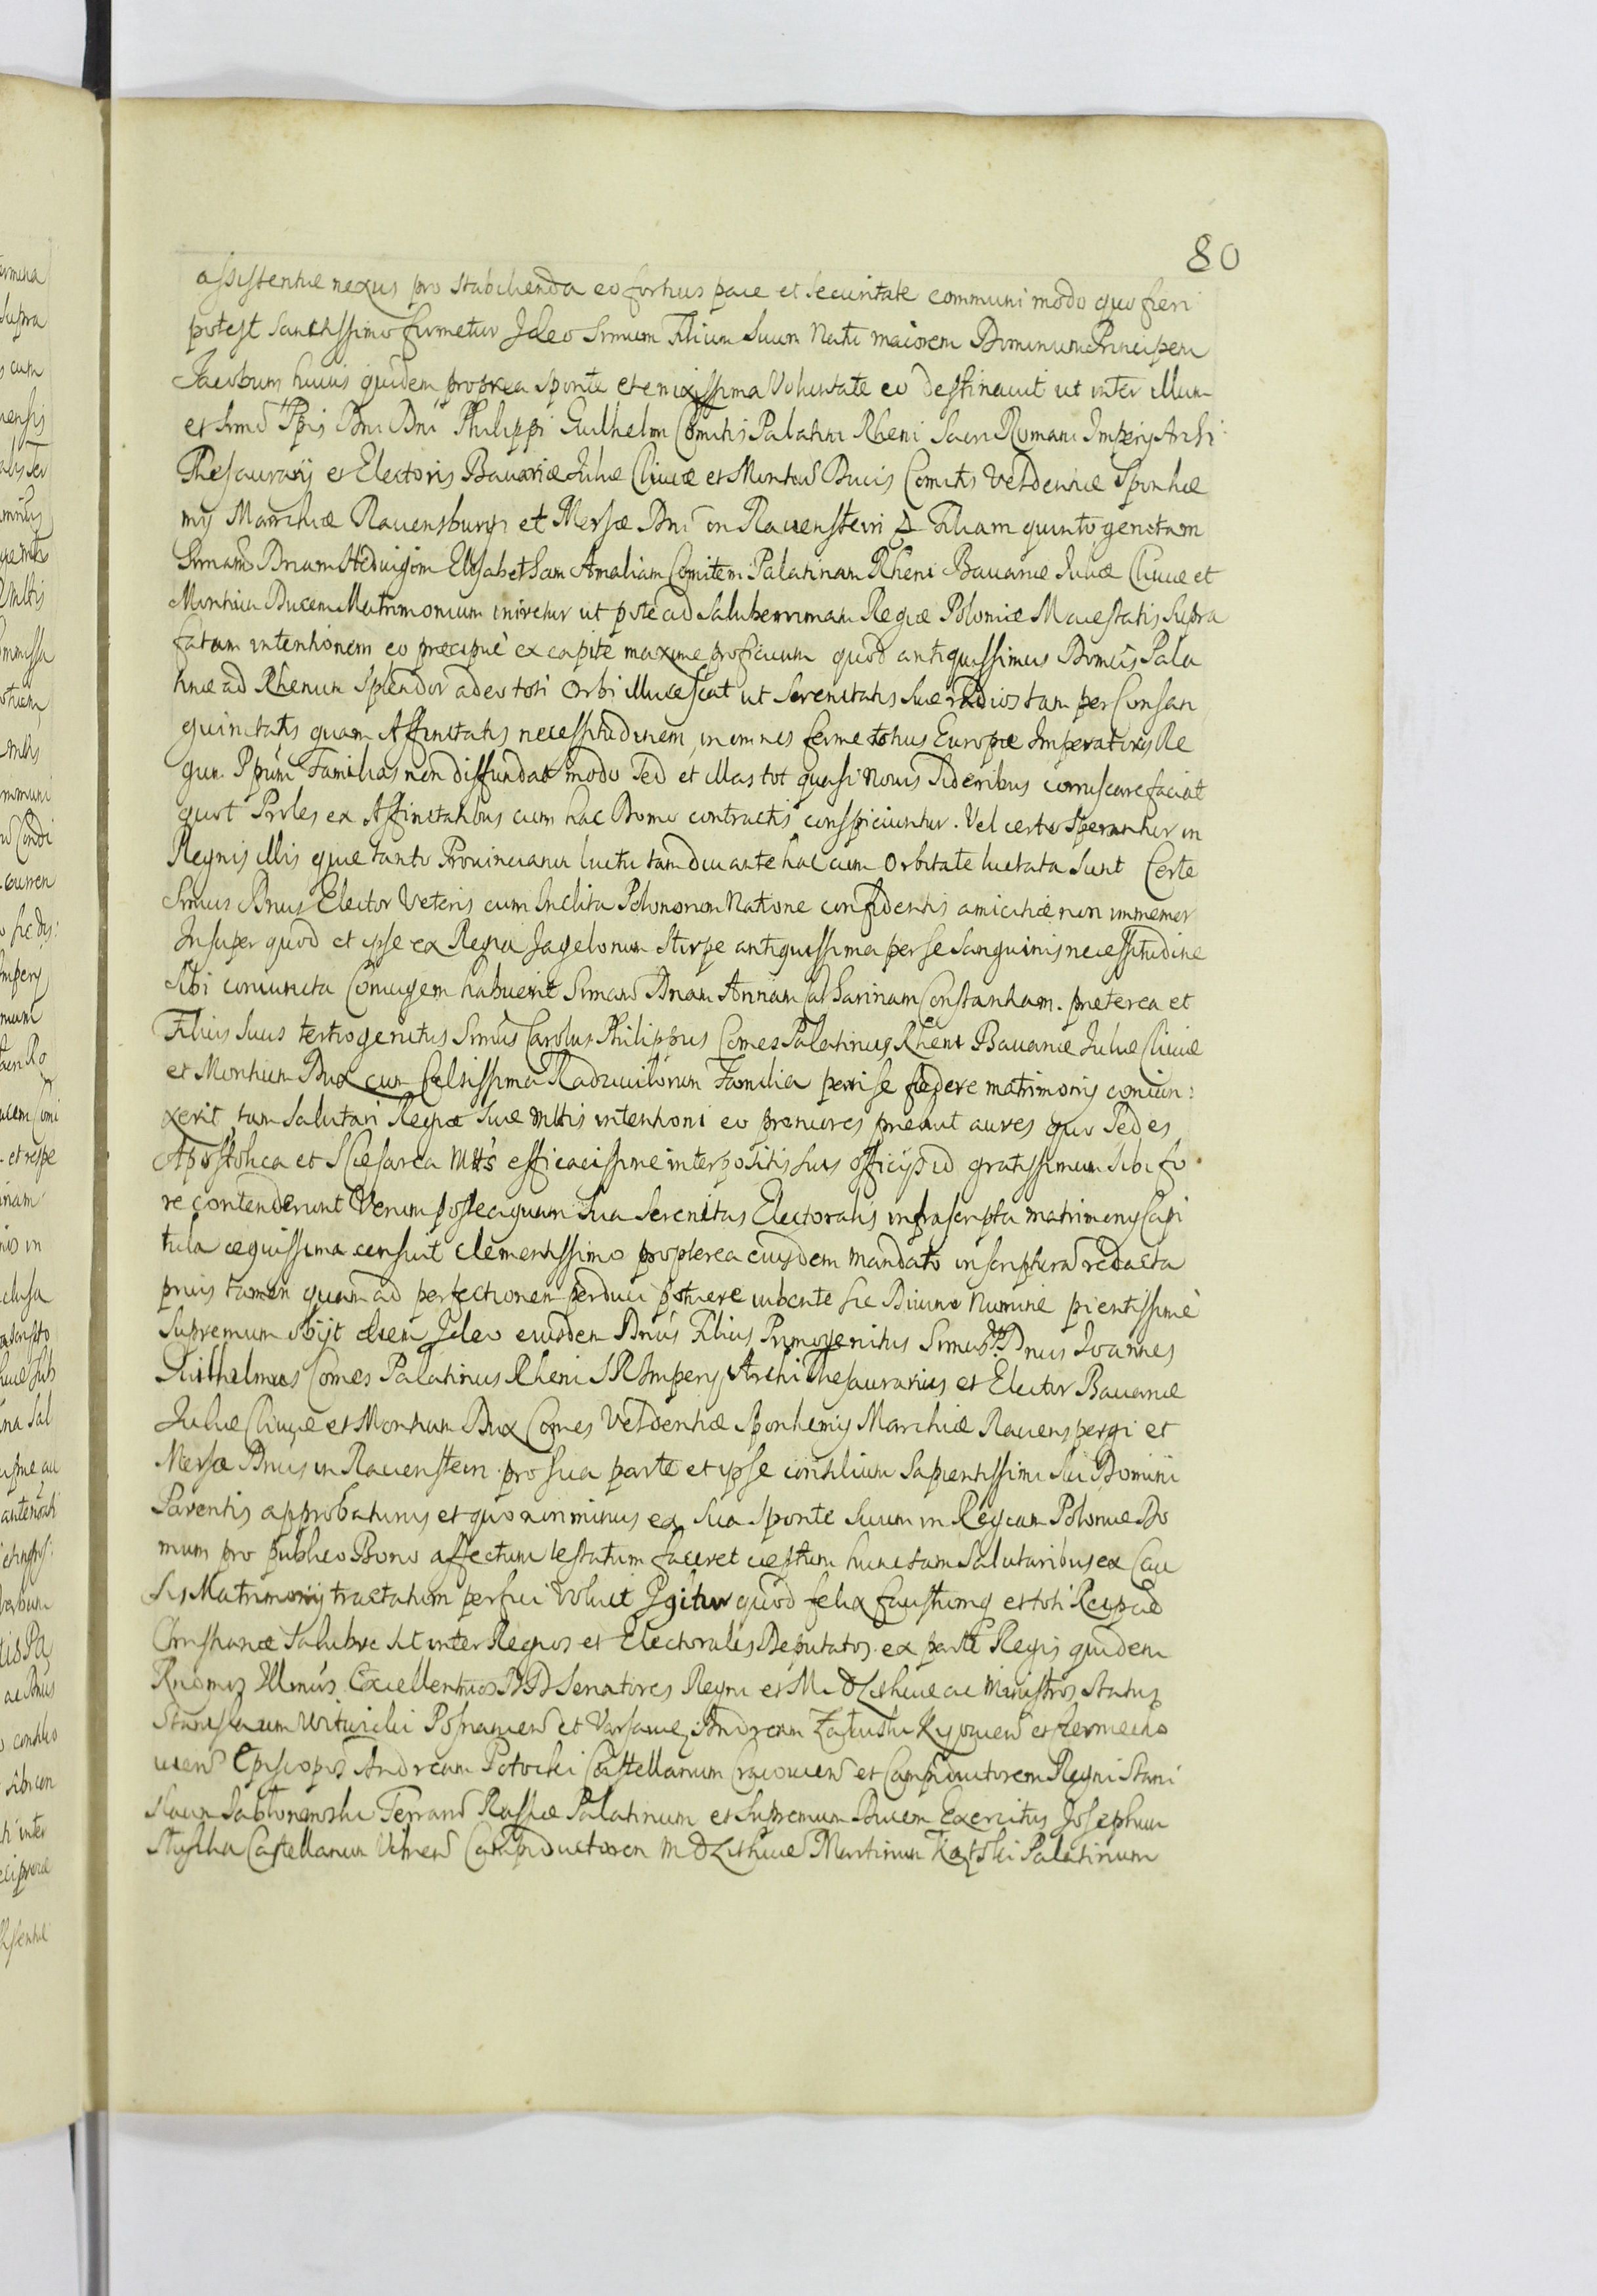 80
assistentiæ nexus pro stabilienda eo fortius pace et securitate communi modo quo fieri
potest sanctissimo firmetur Ideo Srmum Filium Suum Natu maiorem Dominum Principem
Jacobum huius quidem propria sponte et enixissima Voluntate eo destinauit ut inter illum
et Srmi Ppis Dni Dni Philippi Guilhelmi Comitis Palatini Rheni Sacri Romani Imperij Archi
Thesaurarij et Electoris Bauariæ Juliæ Cliuiæ et Montium Ducis Comitis Veldentiæ Sponhe
mij Marchiæ Rauensburgi et Mersæ Dni in Rauenstein & Filiam quinto genitam
Srmam Dnam Hedvigim Elisabetham Amaliam Comitem Palatinam Rheni Bauariæ Juliæ Cliuiæ et
Montium Ducem Matrimonium iniretur ut pote ad saluberrimam Regiæ Poloniæ Maiestatis supra
fatam intentionem eo præcipuè ex capite maxime proficuum quod antiquissimus Domûs Pala
tinæ ad Rhenum splendor adeo toti Orbi illucescat ut Serenitatis suæ radios tam per Consan
guinitatis quam Affinitatis necessitudinem in omnes ferme totius Europæ Imperatorys Re
gum Ppum Familias non diffundat modo sed et illas tot quasi nouis Sideribus corruscare faciat
quot Proles ex Affinitatibus cum hac Domo contractis conspiciuntur. Vel certo sperantur in
Regnis illis quæ tanto Prouinciarum luctu tam diu ante hac cum Orbitate luctata sunt Certe
Srmus Dnus Elector Veteris cum Inclita Polonorum Natione confidentis amicitiæ non immemor
Insuper quod et ipse ex Regia Jagelonum Stirpe antiquissima per se sanguinis necessitudine
sibi coniuncta Coniugem habuerit Srmam Dnam Annam Catharinam Constantiam. præterea et
Filius suus tertiogenitus Srmus Carolus Philippus Comes Palatinus Rheni Bauariæ Juliæ Cliuiæ
et Montium Dux cum Celsissima Radziuilorum Familia pari se fædere matrimonij coniun:
xerit, tam salutari Regiæ suæ Mttis intentioni eo proniores præbuit aures quo Sedes
Apostolica et S Cæsarea Mtts efficacissime interpositis suis officijs id gratissimum sibi fo
re contenderunt Verum posteaquam Sua Serenitas Electoralis infrascripta matrimonij Capi
tula æquissima censuit clementissimo propterea eiusdem mandato in scripturam redacta
prius tamen quam ad perfectionem perduci potuere iubente sic Diuino Numine pientissimè
supremum obijt diem Ideo eiusdem Dnus Filius Primogenitus Srmus Dnus Ioannes
Guilhelmus Comes Palatinus Rheni S R Imperij Archi Thesaurarius et Elector Bauariæ
Juliæ Cliuiæ et Montium Dux Comes Veldentiæ Sponhemij Marchiæ Rauenspergi et
Mersæ Dnus in Rauenstein pro sua parte et ipse consilium sapientissimi sui Domini
Parentis approbaturus et quo non minus ex sua sponte suum in Regiam Poloniæ Do
mum pro publico Bono affectum testatum faceret cæptum hunc tam salutaribus ex Cau
sis Matrimonij tractatum perfici voluit Igitur quod felix faustumq et toti Reipub
Christianæ salubre sit inter Regios et Electorales Deputatos ex parte Regis quidem
Rndmos Illmós Excellentmos DD Senatores Regni et M D Lithuæ ac Ministros Status
Stanislaum Witwicki Posnanien et Varsauiæ, Andream Załuski Kyouien et Czerniecho
uien Episcopos Andream Potocki Castellanum Cracouien et Campiductorem Regni Stani
slaum Jabłonowski Terrarum Russiæ Palatinum et Supremum Ducem Exercitus Josephum
Słuszka Castellanum Vilnen Campiductorem M D Lithuæ Martinum Kątski Palatinum